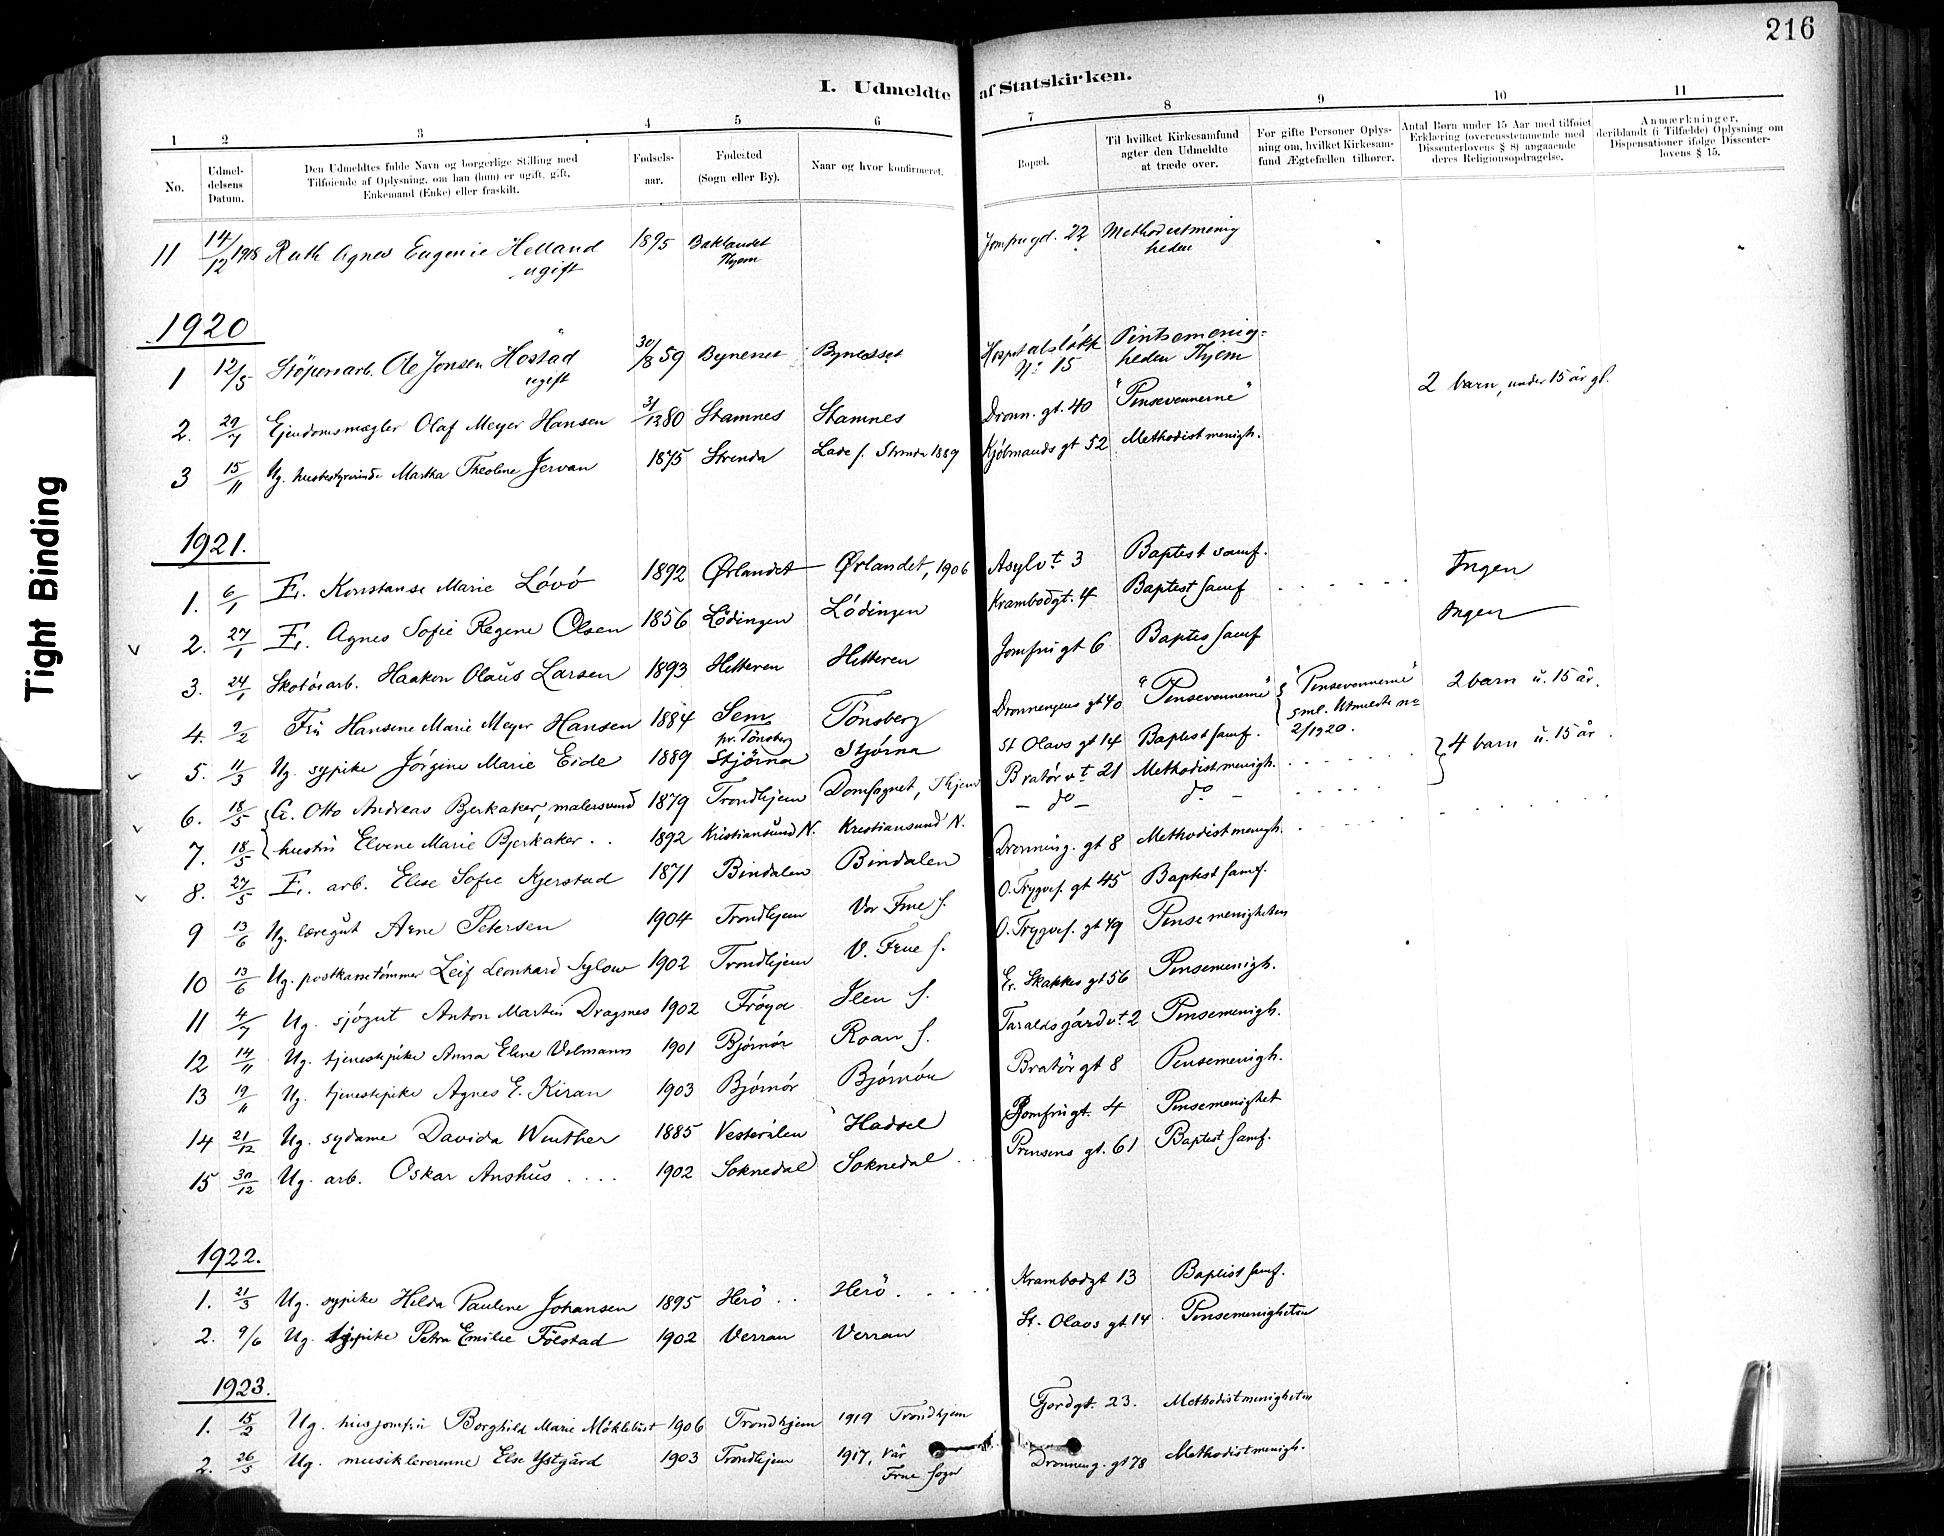 216
I. Udmeldte af Statskirken.
1 2 3 4 5 6 7 8 9 10 11
No. Udmeldelsens Datum. Den Udmeldtes fulde Navn og borgerlige Stilling med Tilføiende af Oplysning, om han (hun) er ugift, gift, Enkemand (Enke) eller fraskilt. Fødselsaar. Fødested (Sogn eller By). Naar og hvor konfirmeret. Bopæl. Til hvilket Kirkesamfund agter den Udmeldte at træde over. For gifte Personer Oplysning om, hvilket Kirkesamfund Ægtefællen tilhører. Antal Børn under 15 Aar med tilføiet Erklæring (overensstemmende med Dissenterlovens § 8) angaaende deres Religionsopdragelse. Anmærkninger, deriblandt (i Tilfælde) Oplysning om Dispensationer ifølge Dissenterlovens § 15.
11 14/12 1918 Ruth Agnes Eugenie Helland ugift 1895 Baklandet Thjem Jomfrugd. 22 Methodistmenigheden
1920
1 12/5 Støperiarb. Ole Jonsen Hostad ugift 30/8 59 Bynesset Bynesset Hospitalsløkk No 15 Pintsemenigheden Thjem
2. 29/7 Ejendomsmægler Olaf Meyer Hansen 31/12 80 Stamnes Stamnes Dronn. gt. 40 "Pinsevennerne" 2 barn, under 15 år gl.
3 15/11 Ug. husbestyrerinde Martha Theoline Jervan 1875 Strinda Lade s. Strinda 1889 Kjøbmands gt 52 Methodist menigh.
1921.
1. 6/1 Fr. Konstanse Marie Løvø 1892 Ørlandet Ørlandet, 1906 Asylvt 3 Baptist samf. Ingen
2. 27/1 Fr. Agnes Sofie Regine Olsen 1856 Lødingen Lødingen Krambodgt. 4 Baptist samf Ingen
3. 24/1 Skotøiarb. Haakon Olaus Larsen 1893 Hitteren Hitteren Jomfrugt 6 Baptis samf
4. 9/2 Fru Hansine Marie Meyer Hansen 1884 Sem pr. Tönsberg Tönsberg Dronningens gt 40 "Pinsevennerne" "Pinsevennerne" sml. Utmeldte no 2/1920. 2 barn u. 15 år.
5. 11/3 Ug. sypike Jørgine Marie Eide 1889 Stjørna Stjørna St Olavs gt 14 Baptist samf.
6. 18/5 G. Otto Andreas Bjerkaker, malersvend 1879 Trondhjem Domsognet, Thjem Bratør vt 21 Methodist menigh. 4 barn u. 15 år.
7. 18/5 hustru Elvine Marie Bjerkaker 1892 Kristiansund N. Kristiansund N. - do - do -
8. 27/5 Fr. arb. Elise Sofie Kjerstad 1871 Bindalen Bindalen Dronning. gt 8 Methodist menigh.
9 13/6 Ug. læregut Arne Petersen 1904 Trondhjem Vor Frue s. O. Trygves. gt 45 Baptist samf.
10 13/6 Ug. postkasetømmer Leif Leonhard Sylow 1902 Trondhjem V. Frue s. O. Trygves. gt 49 Pinsemenigheten
11 4/7 Ug. sjøgut Anton Martin Dragsnes 1902 Frøya Ilen s. Er. Skakkes gt 56 Pinsemenigh.
12 14/11 Ug. tjenestepike Anna Eline Volmann 1901 Bjørnør Roan s. Taraldsgårdvt 2 Pinsemenigh.
13 19/11 Ug. tjenestepike Agnes E. Kiran 1903 Bjørnør Bjørnør Bratørgt 8 Pinsemenigh.
14 21/12 Ug. sydame Davida Winther 1885 Vesterålen Hadsel Jomfrugt. 4 Pinsemenighet
15 30/12 Ug. arb. Oskar Anshus 1902 Soknedal Soknedal Prinsens gt. 61 Baptist samf.
1922.
1. 21/3 Ug. sypike Hilda Pauline Johansen 1895 Herö Herö Krambodgt 13 Baptist samf.
2. 9/6 Ug. sypike Petra Emilie Følstad 1902 Verran Verran St. Olavs gt. 14 Pinsemenigheten
1923.
1. 15/2 Ug. husjomfru Borghild Marie Møklebust 1906 Trondhjem 1919 Trondhjem Fjordgt. 23. Methodistmenigheten
2. 26/5 Ug. musiklererinne Else Ystgård 1903 Trondhjem 1917, Vår Frue sogn Dronning. gt 78 Methodistmenigh.
Tight Binding